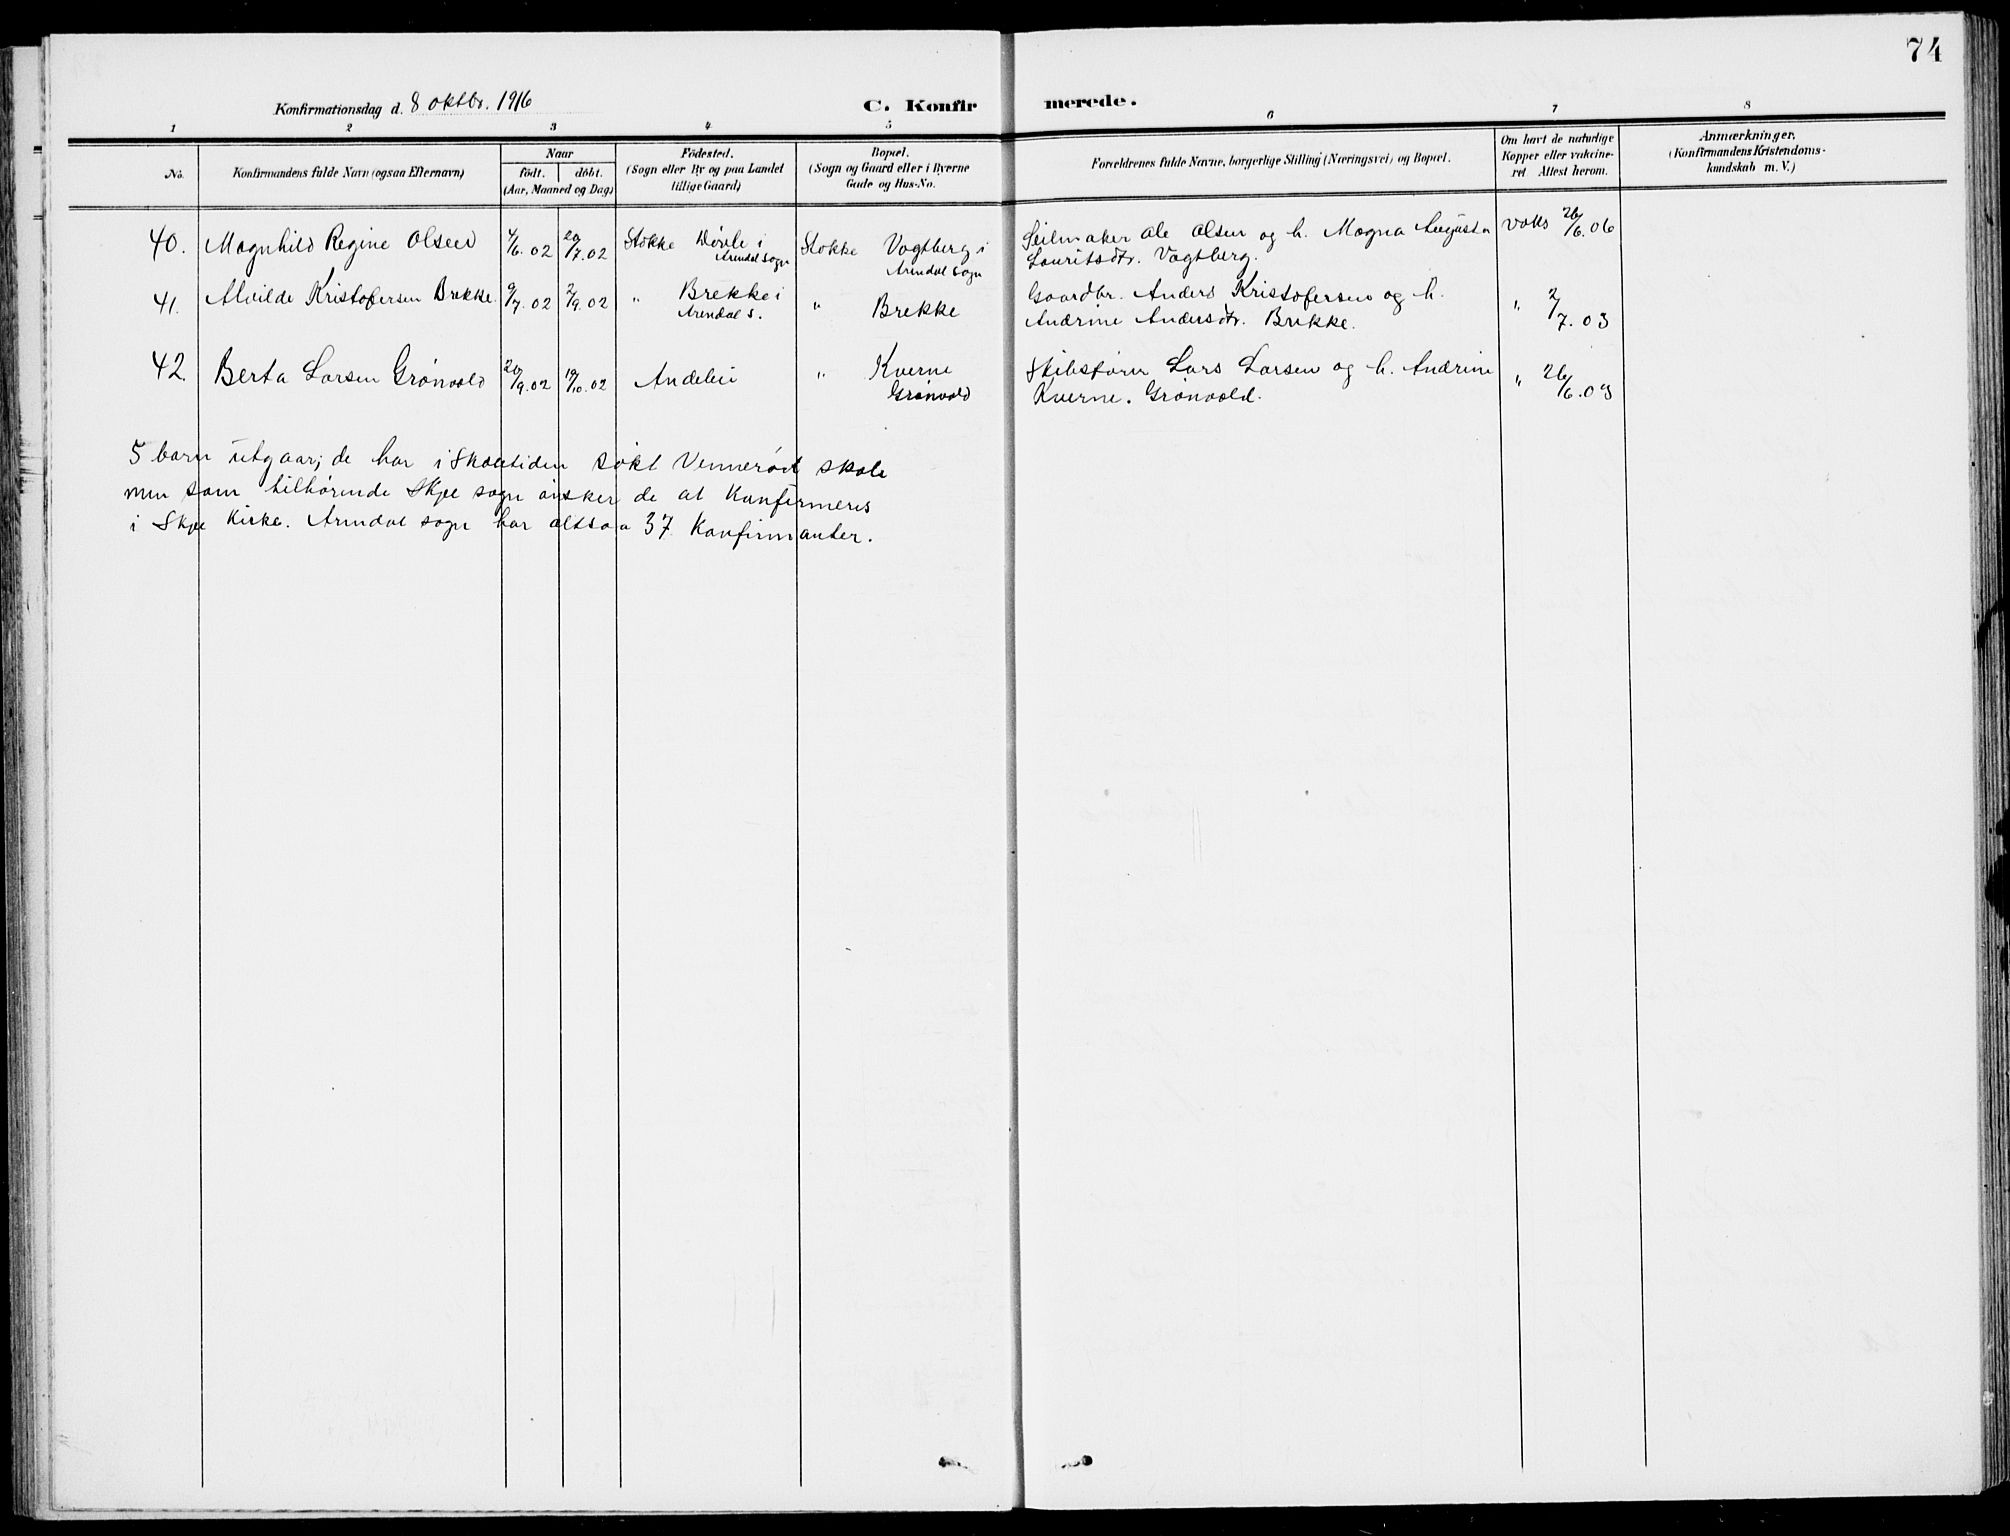 74
Konfirmationsdag d. 8 oktbr. 1916
C. Konfir merede.
1 2 3 4 5 6 7 8
No.
Konfirmandens fulde Navn (ogsaa Efternavn)
Naar
födt. döbt.
(Aar, Maaned og Dag)
Födested.
(Sogn eller By og paa Landet
tillige Gaard)
Bopæl.
(Sogn og Gaard eller i Byerne
Gade og Hus-No.
Forældrenes fulde Navne, borgerlige Stilling (Næringsvei) og Bopæl.
Om havt de naturlige
Kopper eller vakcine-
ret Attest herom.
Anmærkninger.
(Konfirmandens Kristendoms-
kundskab m. V.)
40. Magnhild Regine Olsen 4/6.02 20/7.02 Stokke Døvle i Stokke Vagtberg i Seilmaker Ole Olsen og h. Magna Augusta vaks 26/6.06
Arendal sogn Arendal sogn Lauritsdtr. Vagtberg.
41. Alvilde Kristofersen Brekke 9/7.02 2/9.02 " Brekke i " Brekke Gaardbr. Anders Kristofersen og h. " 2/7.03
Arendal s. Andrine Andersdtr. Brekke.
42. Berta Larsen Grønvold 20/9.02 19/10.02 Andebu " Kverne Skibstøm Lars Larsen og h. Andrine " 26/6.03
Grønvold Kverne. Grønvold.
5 barn utgaar; de har i Skoletiden søkt Vennerød skole
men som tilhørende Skjee sogn ønsker de at Konfirmeres
i Skjee Kirke. Arendal sogn har altsaa 37 Konfirmanter.